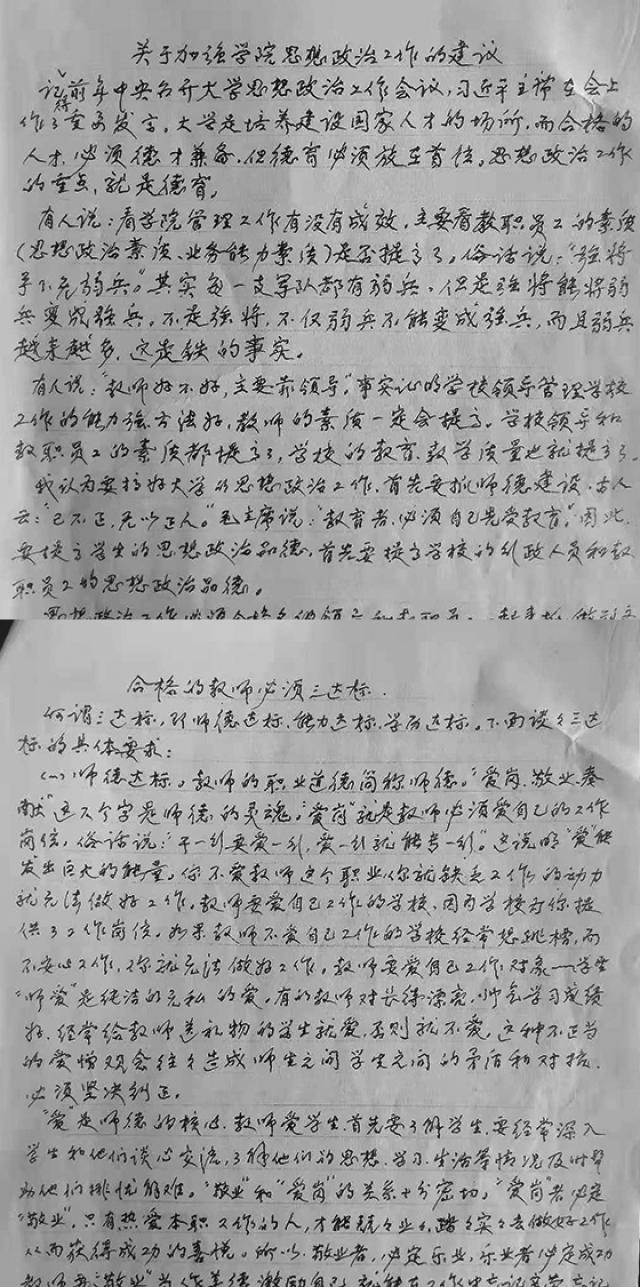 关于加强学院思想政治工作的建议
记得前年中央召开大学思想政治工作会议，习近平主席在会上
作了重要发言。大学是培养建设国家人才的场所，而合格的
人才，必须德才兼备，但德育必须放在首位。思想政治工作
的重点，就是德育。
有人说：看学院管理工作有没有成效，主要看教职员工的素质
（思想政治素质、业务能力素质）是否提高了。俗话说：“强将
手下无弱兵。”其实每一支军队都有弱兵，但是强将能将弱
兵变成强兵。不是强将，不仅弱兵不能变成强兵，而且弱兵
越来越多，这是铁的事实。
有人说：“教师好不好，主要靠领导。”事实证明学校领导管理学校
工作的能力强方法好，教师的素质一定会提高。学校领导和
教职员工的素质都提高了，学校的教育、教学质量也就提高了。
我认为要搞好大学的思想政治工作，首先要抓师德建设，古人
云：“己不正，无以正人。”毛主席说：“教育者，必须自己先受教育。”因此，
要提高学生的思想政治品德，首先要提高学校的行政人员和教
职员工的思想政治品德。
思想政治工作必须
合格的教师必须三达标
何谓三达标，即师德达标、能力达标、学历达标。下面谈谈三达
标的具体要求：
（一）师德达标。教师的职业道德简称师德。“爱岗、敬业、奉
献”这六个字是师德的灵魂。“爱岗”就是教师必须爱自己的工作
岗位，俗话说：“干一行要爱一行，爱一行就能专一行”。这说明“爱”能
发出巨大的能量。你不爱教师这个职业，你就缺乏工作的动力
就无法做好工作。教师要爱自己工作的学校，因为学校为你提
供了工作岗位。如果教师不爱自己工作的学校经常想跳槽，而
不安心工作，你就无法做好工作。教师要爱自己工作对象——学生
“师爱”是纯洁的无私的爱。有的教师对长得漂亮、帅气学习成绩
好、经常给教师送礼物的学生就爱，否则就不爱，这种不正当
的爱憎观会往往造成师生之间学生之间的矛盾和对抗，
必须坚决纠正。
“爱”是师德的核心，教师爱学生，首先要了解学生，要经常深入
学生和他们谈心交流，了解他们的思想、学习、生活等情况及时帮
助他们排忧解难。“敬业”和“爱岗”的关系十分密切。“爱岗”者必定
“敬业”，只有热爱本职工作的人，才能兢兢业业，踏踏实实去做好工作
从而获得成功的喜悦。所以，敬业者，必定乐业，乐业者必定成功